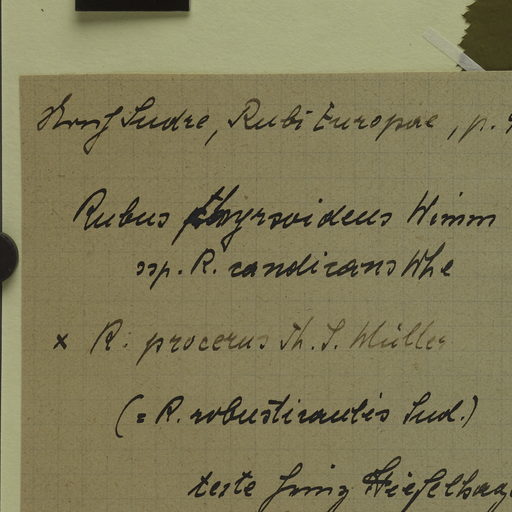 Sudre, Rubi Europae, p.
Rubus thyrsoideus Wimm
ssp. R. candicans Whe
x R. procerus Ph. J. Müller
(= R. robusticaulis Sud.)
teste